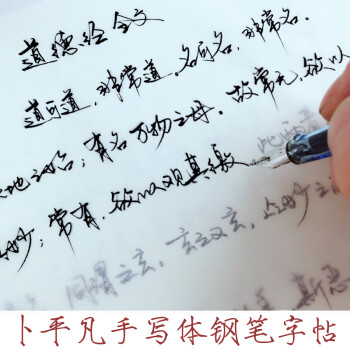 道德经全文
道可道，非常道，名可名，非常名。
地之始；有名万物之母。故常无，欲以
妙；常有，欲以观其徼
此两者
同谓之玄。玄之又玄，众妙之
斯恶
卜平凡手写体钢笔字帖